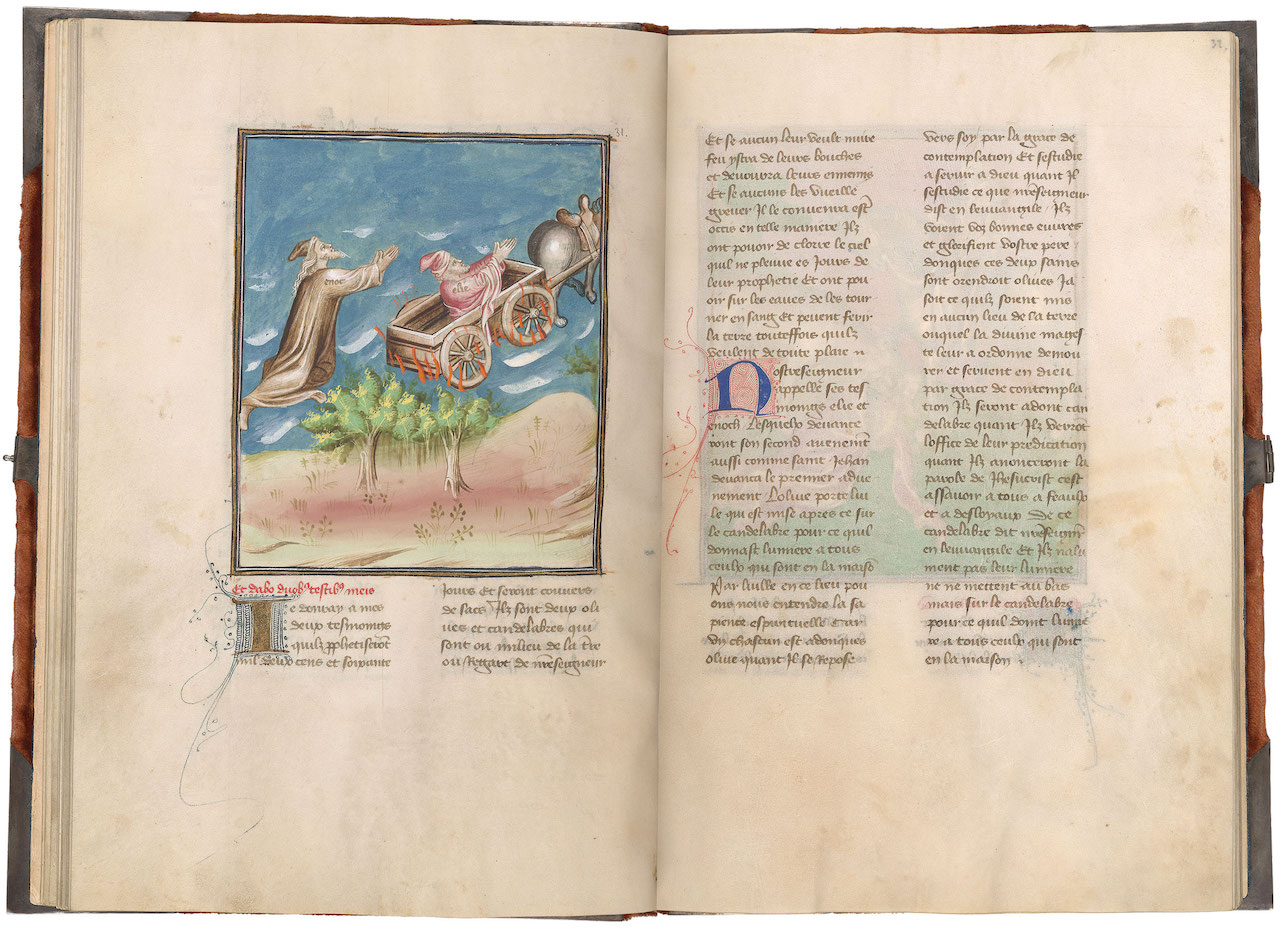 31.
enoc
elie
Et dabo duob9 testib9 meis
Je donray a mes
deux tesmoings
quilz pphetiserot
mil deux cens et soixante
Jours Et seront couvers
de sacs Jlz sont deux oli
ves et candelabres qui
sont ou milieu de la tre
ou Regart de nreseigneur
32.
Et se aucun leur veult nuire
feu ystra de leurs bouches
et devourra leurs ennemis
Et se aucuns les vueille
grever Il le convenra estre
occis en telle maniere Ilz
ont pouoir de clorre le ciel
quil ne pleuve es Jours de
leur prophetie Et ont pou
oir sur les eaues de les tour
ner en sang Et peuent ferir
la terre touteffois quilz
veulent de toute plaie
Nostreseigneur
appelle ses tes
moings elie et
enoch Lesquelx devance
ront son second avenemt
aussi comme saint Jehan
devanca le premier adve
nement Lolive porte lui
le qui est mise apres ce sur
le candelabre pour ce quil
donnast lumiere a tous
ceulx qui sont en la maiso
Par luille en ce lieu pou
ons nous entendre la sa
pience espirituelle Car
vn chascun est adonques
olive quant Il se Repose
vers soy par la grace de
contemplation Et sestudie
a servir a dieu quant Il
sestudie ce que nreseigneur
dist en leuvangile Ilz
voient voz bonnes euvres
et glorifient vostre pere
donques ces deux sains
sont orendroit olives Ja
soit ce quilz soient mis
en aucun lieu de la terre
ouquel la divine mages
te leur a ordonne demou
rer et servent en dieu
par grace de contempla
tion Ilz seront adont can
delabre quant Ilz verrot
loffice de leur predication
quant Ilz anonceront la
parole de Jhesucrist cest
assavoir a tous a feaulx
et a desloyaux De ce
candelabre dit nreseignr
en leuvangile Et Ilz nalu
ment pas leur lumiere
ne ne mettent au bas
mais sur le candelabre
pour ce quil doint lumie
re a tous ceulx qui sont
en la maison